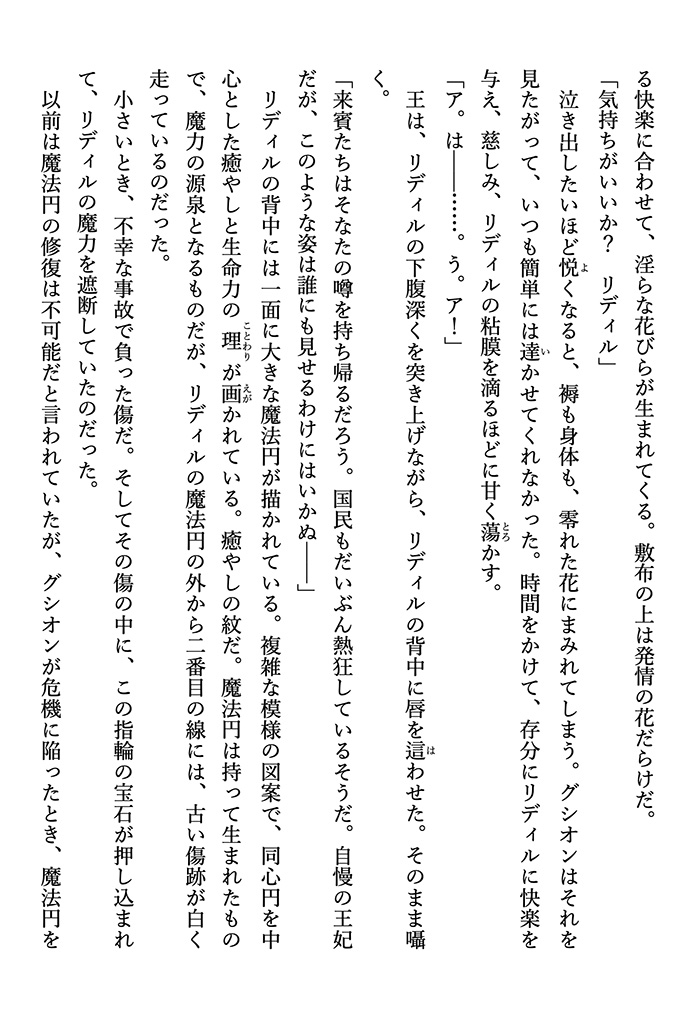 る快楽に合わせて、淫らな花びらが生まれてくる。敷布の上は発情の花だらけだ。
「気持ちがいいか？　リディル」
　泣き出したいほど悦くなると、褥も身体も、零れた花にまみれてしまう。グシオンはそれを
見たがって、いつも簡単には達かせてくれなかった。時間をかけて、存分にリディルに快楽を
与え、慈しみ、リディルの粘膜を滴るほどに甘く蕩かす。
「ア。は――……。う。ア！」
　王は、リディルの下腹深くを突き上げながら、リディルの背中に唇を這わせた。そのまま囁
く。
「来賓たちはそなたの噂を持ち帰るだろう。国民もだいぶん熱狂しているそうだ。自慢の王妃
だが、このような姿は誰にも見せるわけにはいかぬ――」
　リディルの背中には一面に大きな魔法円が描かれている。複雑な模様の図案で、同心円を中
心とした癒やしと生命力の理が画かれている。癒やしの紋だ。魔法円は持って生まれたもの
で、魔力の源泉となるものだが、リディルの魔法円の外から二番目の線には、古い傷跡が白く
走っているのだった。
　小さいとき、不幸な事故で負った傷だ。そしてその傷の中に、この指輪の宝石が押し込まれ
て、リディルの魔力を遮断していたのだった。
　以前は魔法円の修復は不可能だと言われていたが、グシオンが危機に陥ったとき、魔法円を